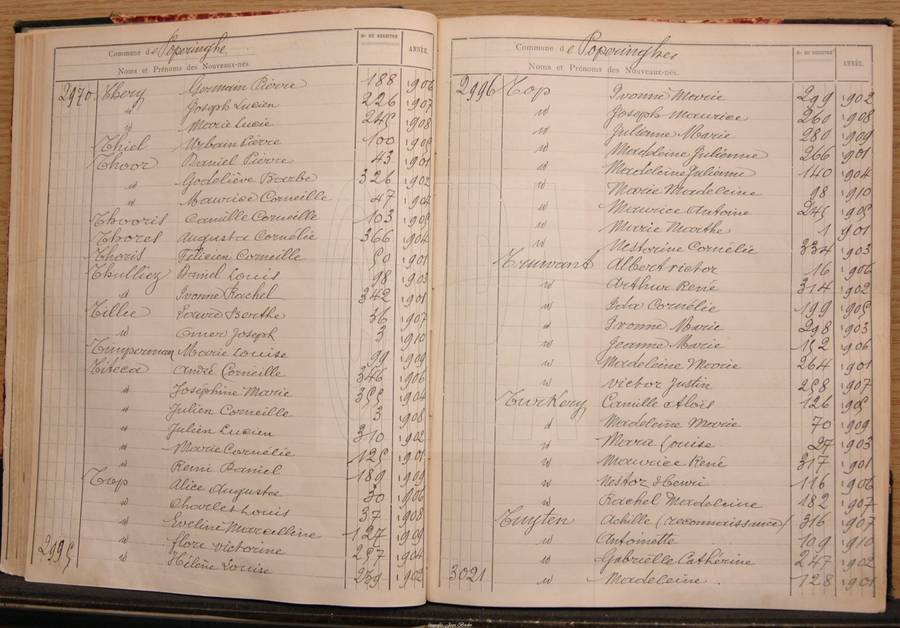 Commune de Poperinghe
Noms et Prénoms des Nouveaux-nés.
Nos DE REGISTRE
ANNÉE.
2970 Thery Germain Pierre 188 1906
" Joseph Lucien 226 1907
" Marie Lucie 245 1908
Thiel Urbain Pierre 100 1905
Thoor Daniel Pierre 43 1901
" Godeliève Barbe 326 1902
" Maurice Corneille 47 1904
Thooris Camille Corneille 103 1905
Thorel Augusta Cornélie 366 1904
Thoris Félicien Corneille 50 1901
Thulliez Daniel Louis 98 1903
" Ivonne Rachel 342 1901
Tillie Berthe 36 1907
" Omer Joseph 3 1910
Timperman Marie Louise 99 1909
Titeca André Corneille 346 1906
" Joséphine Marie 355 1904
" Julien Corneille 3 1908
" Julien Lucien 310 1902
" Marie Cornélie 125 1901
" Remi Daniel 189 1909
Top Alice Augusta 30 1906
" Charles Louis 37 1908
" Eveline Marcelline 127 1909
" Flore Victorine 257 1904
2995 " Hélène Louise 239 1902
Commune de Poperinghe
Noms et Prénoms des Nouveaux-nés.
Nos DE REGISTRE
ANNÉE.
2996 Top Ivonne Marie 299 1902
" Joseph Maurice 260 1908
" Julienne Marie 280 1909
" Madeleine Julienne 266 1901
" Madeleine Julienne 140 1904
" Marie Madeleine 98 1910
" Maurice Antoine 245 1905
" Marie Marthe 1 1901
" Nestorine Cornélie 334 1903
Truwant Albert Victor 16 1906
" Arthur René 314 1902
" Ida Cornélie 199 1905
" Ivonne Marie 298 1903
" Jeanne Marie 152 1906
" Madeleine Marie 264 1901
" Victor Justin 258 1907
Turkery Camille Aloïs 126 1905
" Madeleine Marie 70 1909
" Marie Louise 27 1903
" Maurice René 317 1901
" Nestor Henri 116 1906
" Rachel Madeleine 182 1907
Tuyten Achille (reconnaissance) 316 1907
" Antoinette 109 1910
" Gabrielle Cathérine 247 1902
3021 " Madeleine 128 1901